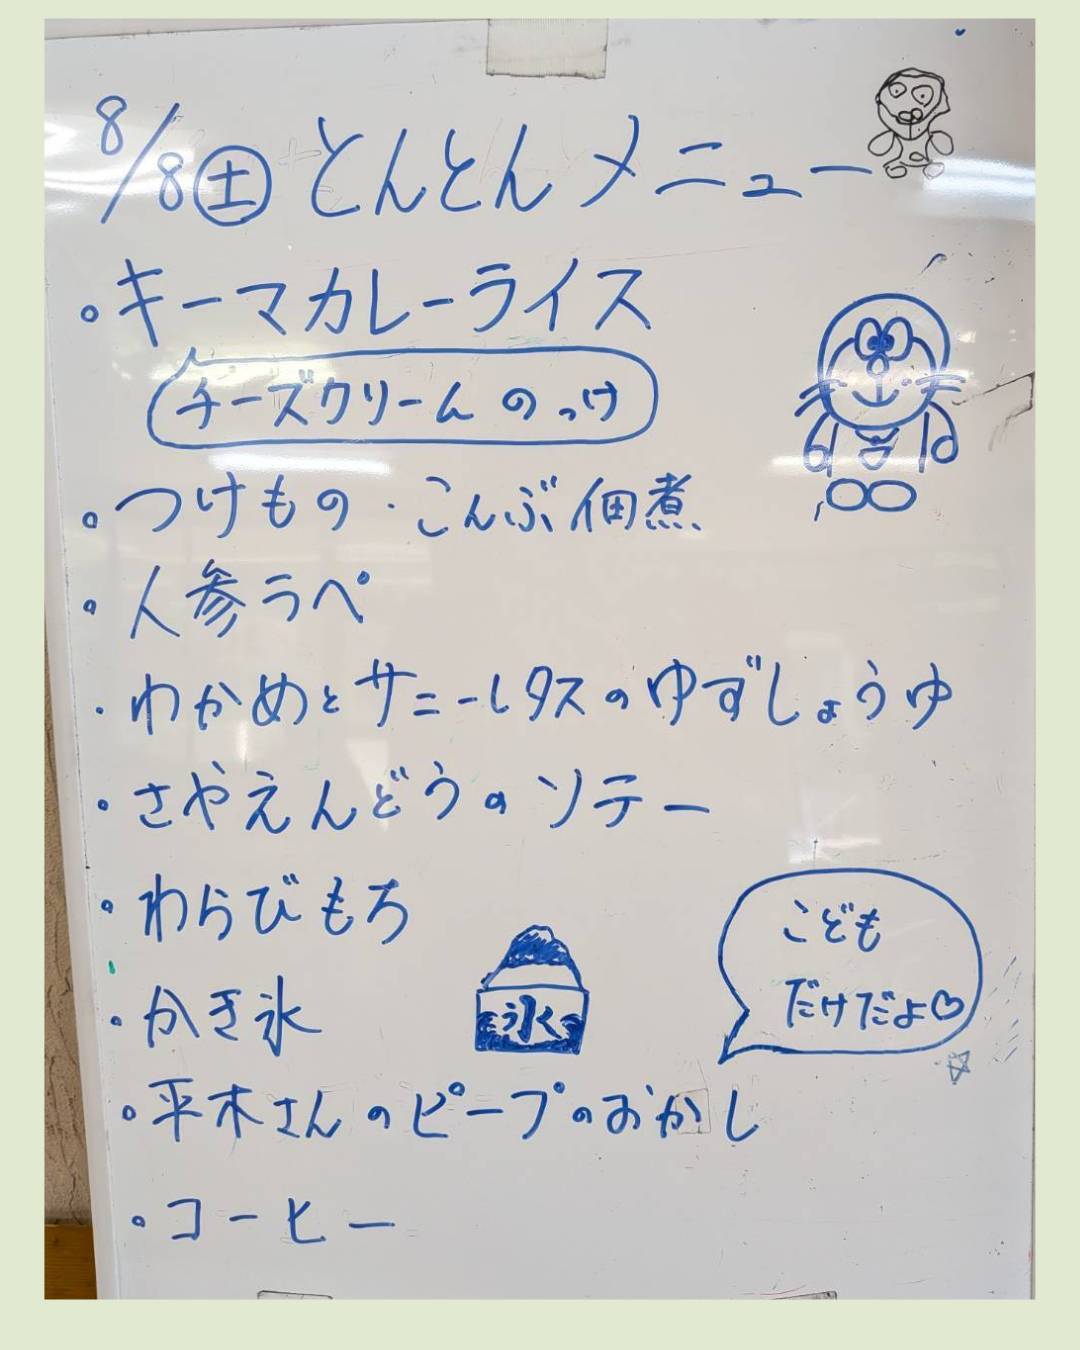 8/8土 とんとんメニュー
・キーマカレーライス
チーズクリームのっけ
・つけもの・こんぶ佃煮
・人参ラペ
・わかめとサニーレタスのゆずしょうゆ
・さやえんどうのソテー
・わらびもち
・かき氷
氷
こども
だけだよ♡
・平木さんのピープのおかし
・コーヒー